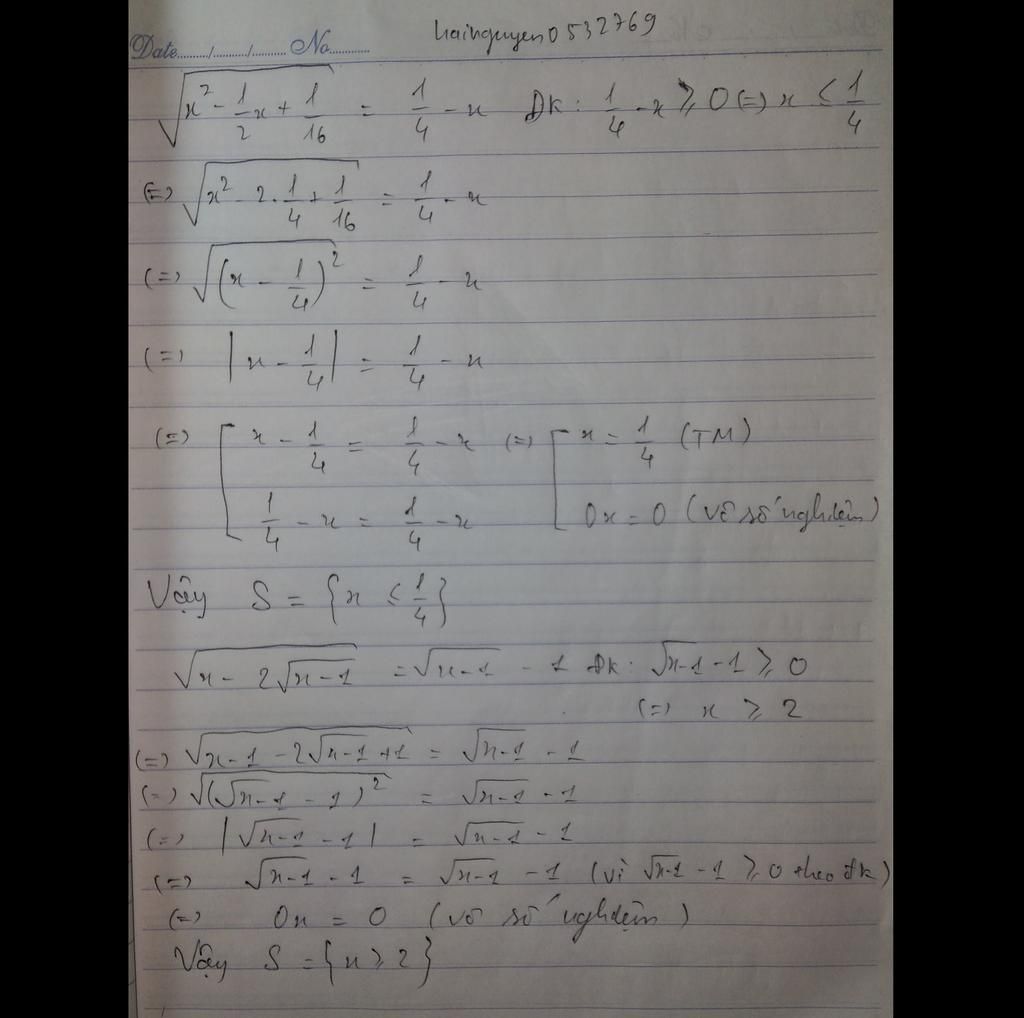 hainguyen0532769
Date......./......../........ No..........
√(x² - 1/2x + 1/16) = 1/4 - x ĐK: 1/4 - x ≥ 0 (=) x ≤ 1/4
(=) √(x² - 2.1/4 + 1/16) = 1/4 - x
(=) √((x - 1/4)²) = 1/4 - x
(=) |x - 1/4| = 1/4 - x
(=) [ x - 1/4 = 1/4 - x (=) [ x = 1/4 (TM)
1/4 - x = 1/4 - x 0x = 0 (vô số nghiệm)
Vậy S = {x ≤ 1/4}
√(x - 2√(x-1)) = √(x-1) - 1 ĐK: √(x-1) - 1 ≥ 0
(=) x ≥ 2
(=) √(x-1 - 2√(x-1) + 1) = √(x-1) - 1
(=) √((√(x-1) - 1)²) = √(x-1) - 1
(=) |√(x-1) - 1| = √(x-1) - 1
(=) √(x-1) - 1 = √(x-1) - 1 (vì √(x-1) - 1 ≥ 0 theo đk)
(=) 0x = 0 (vô số nghiệm)
Vậy S = {x ≥ 2}